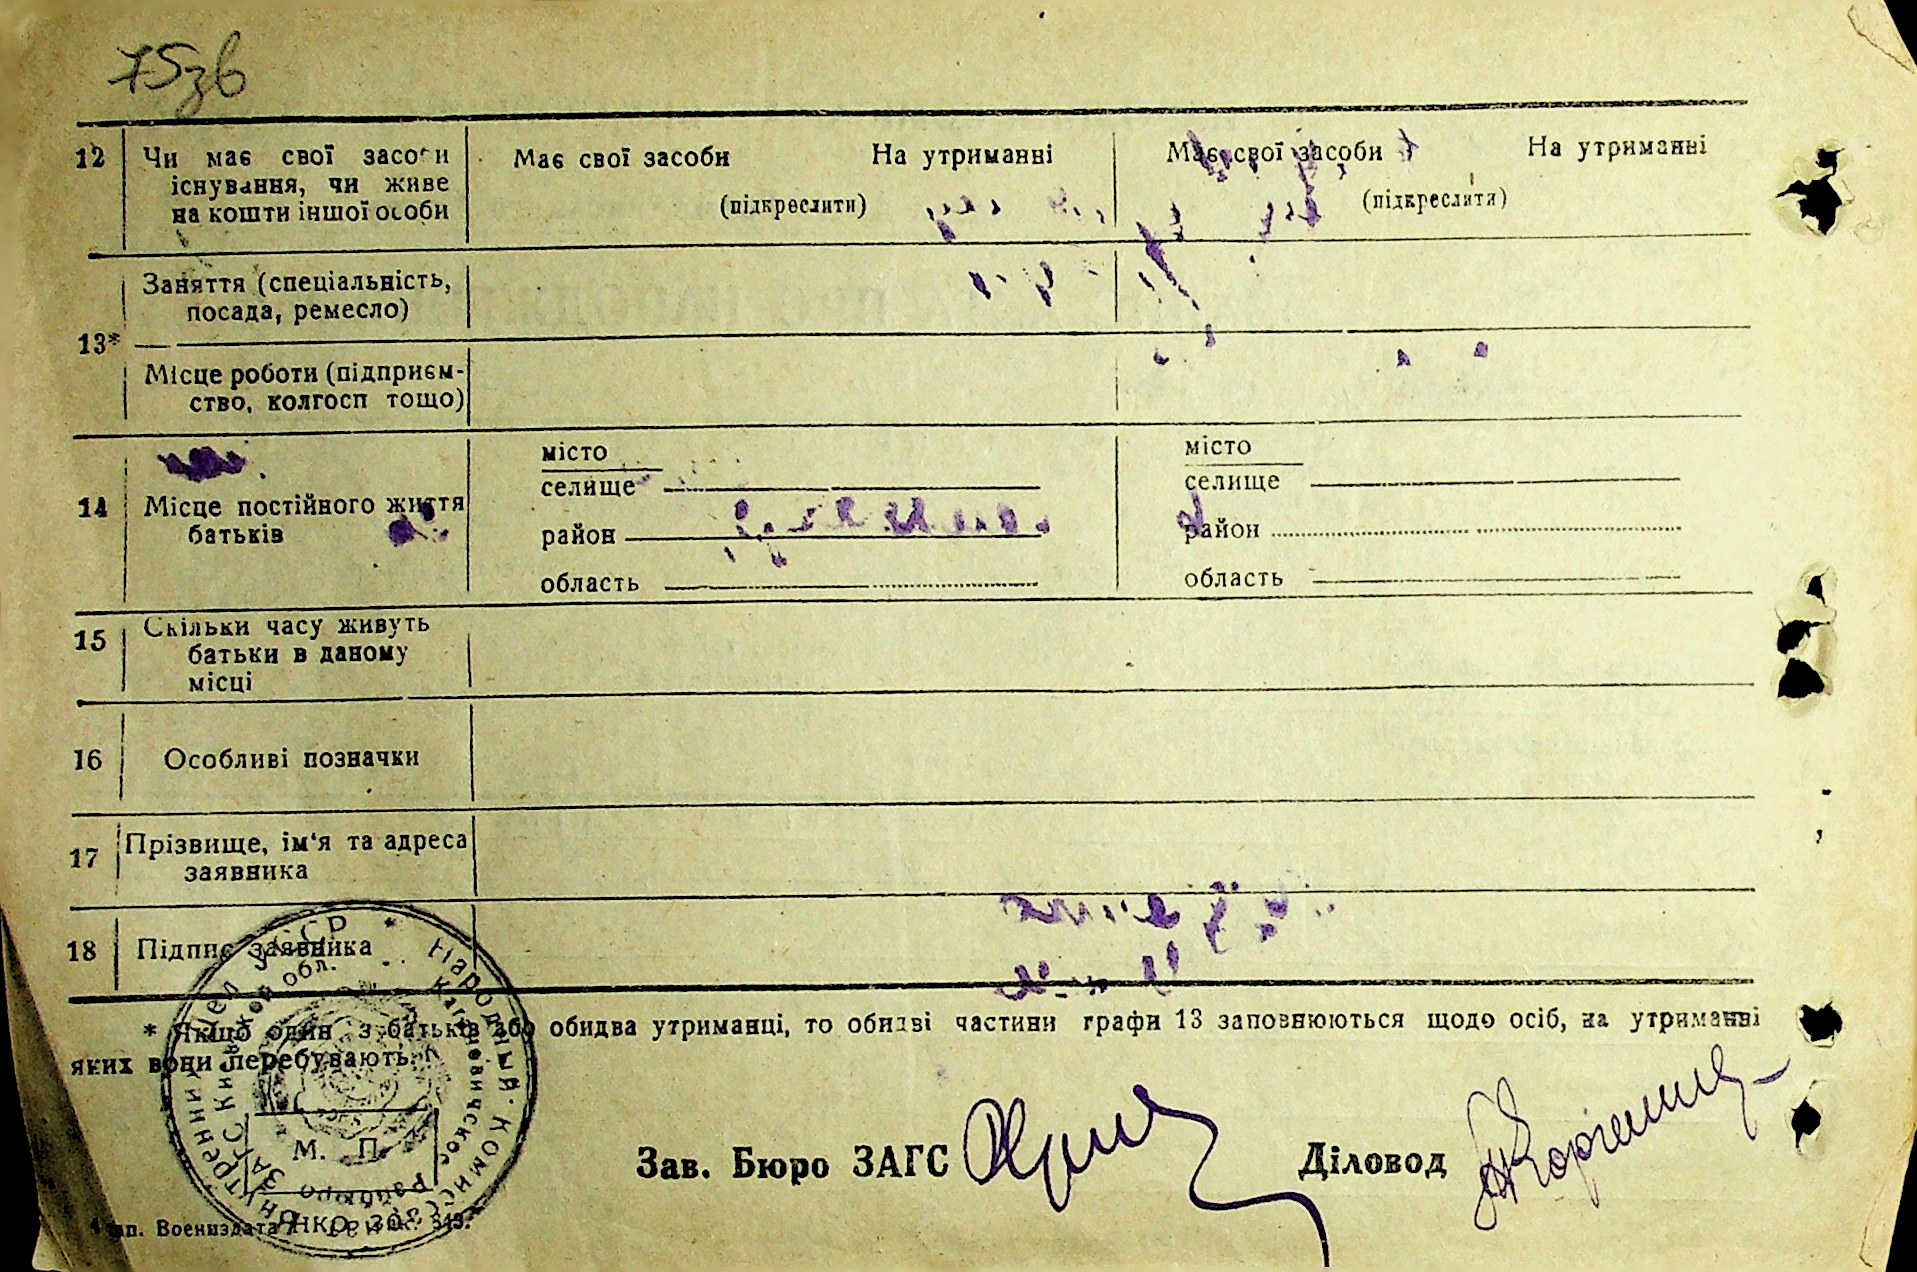 75зв
12 Чи має свої засоби Має свої засоби На утриманні Має свої засоби На утриманні
існування, чи живе
на кошти іншої особи (підкреслити) (підкреслити)
Заняття (спеціальність,
посада, ремесло)
13*
Місце роботи (підприєм-
ство, колгосп тощо)
місто місто
селище селище
14 Місце постійного життя
батьків район район
область область
15 Скільки часу живуть
батьки в даному
місці
16 Особливі позначки
17 Прізвище, ім'я та адреса
заявника
18 Підпис заявника
* Якщо один з батьків або обидва утриманці, то обидві частини графи 13 заповнюються щодо осіб, на утриманні
яких вони перебувають.
М. П.
Зав. Бюро ЗАГС Діловод
Народный Комиссариат Внутренних Дел УССР
ЗАГС Киевской обл.
Кагановическое Райбюро
тип. Воениздата НКО